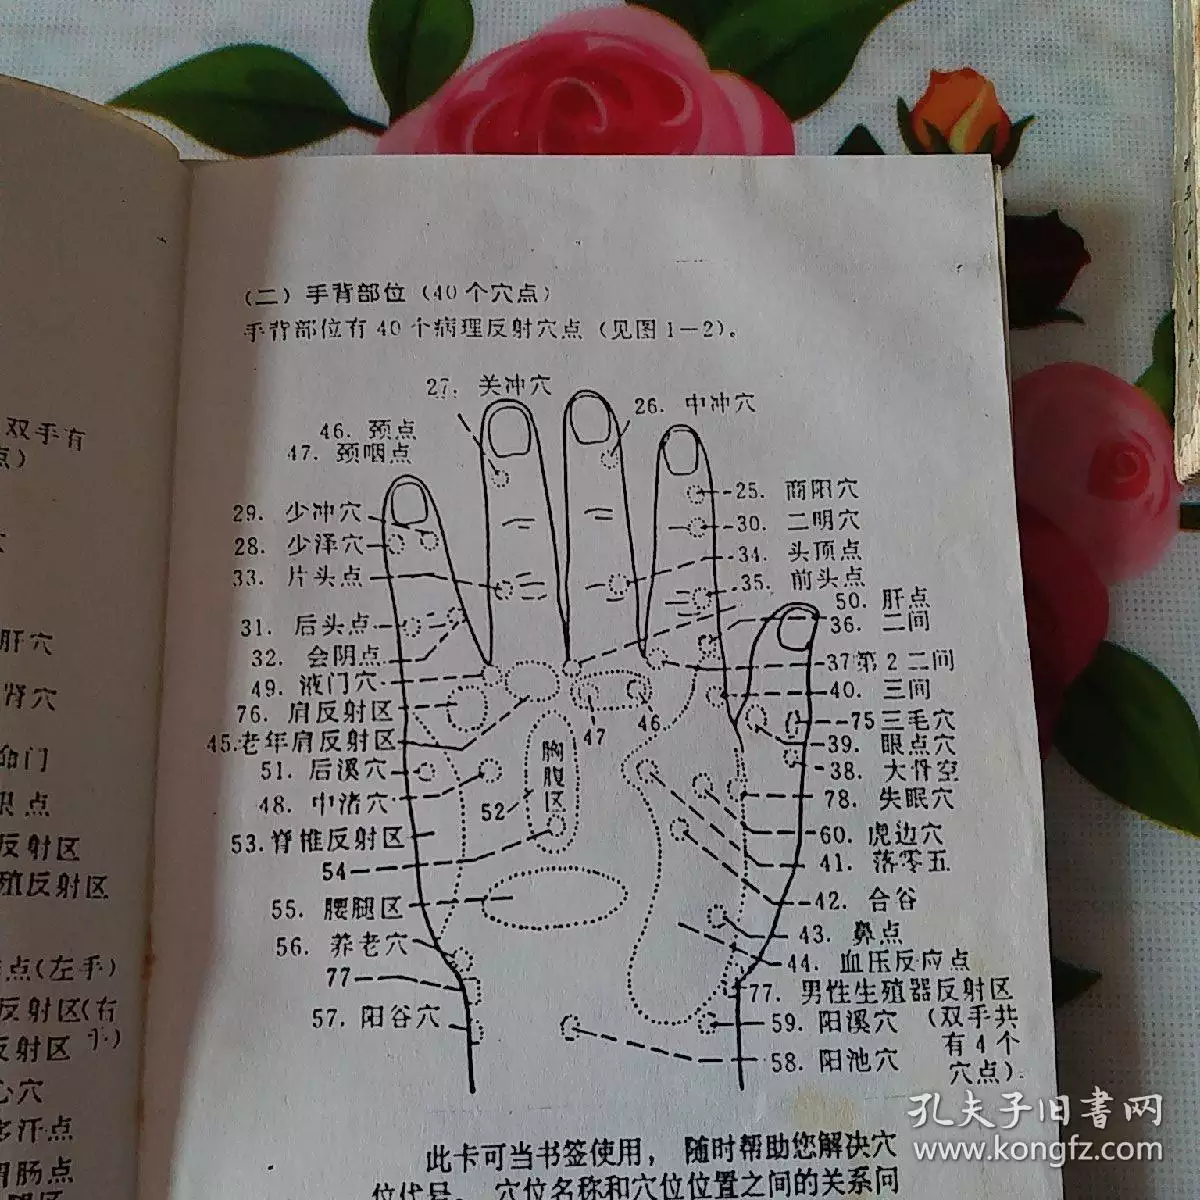 双手有
点)
肝穴
肾穴
命门
点
反射区
殖反射区
点(左手)
反射区(右
手)
反射区
心穴
多汗点
胃肠点
(二)手背部位(40个穴点)
手背部位有40个病理反射穴点(见图1—2)。
27. 关冲穴
26. 中冲穴
46. 颈点
47. 颈咽点
25. 商阳穴
29. 少冲穴
30. 二明穴
28. 少泽穴
34. 头顶点
33. 片头点
35. 前头点
50. 肝点
31. 后头点
36. 二间
32. 会阴点
37第2二间
49. 液门穴
40. 三间
76. 肩反射区
75三毛穴
47
46
45.老年肩反射区
39. 眼点穴
胸腹区
51. 后溪穴
38. 大骨空
48. 中渚穴
52
78. 失眠穴
53.脊椎反射区
60. 虎边穴
54
41. 落零五
55. 腰腿区
42. 合谷
56. 养老穴
43. 鼻点
77
44. 血压反应点
77. 男性生殖器反射区
57. 阳谷穴
59. 阳溪穴
(双手共
有4个
穴点)
58. 阳池穴
此卡可当书签使用,随时帮助您解决穴
位代号、穴位名称和穴位位置之间的关系问
孔夫子旧书网
www.kongfz.com